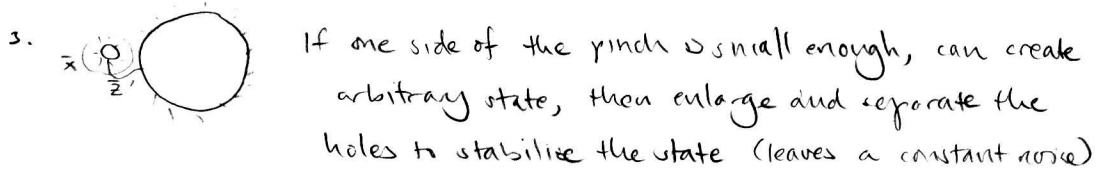 3.
If one side of the pinch is small enough, can create
arbitrary state, then enlarge and separate the
holes to stabilise the state (leaves a constant noise)
X̄
Z̄